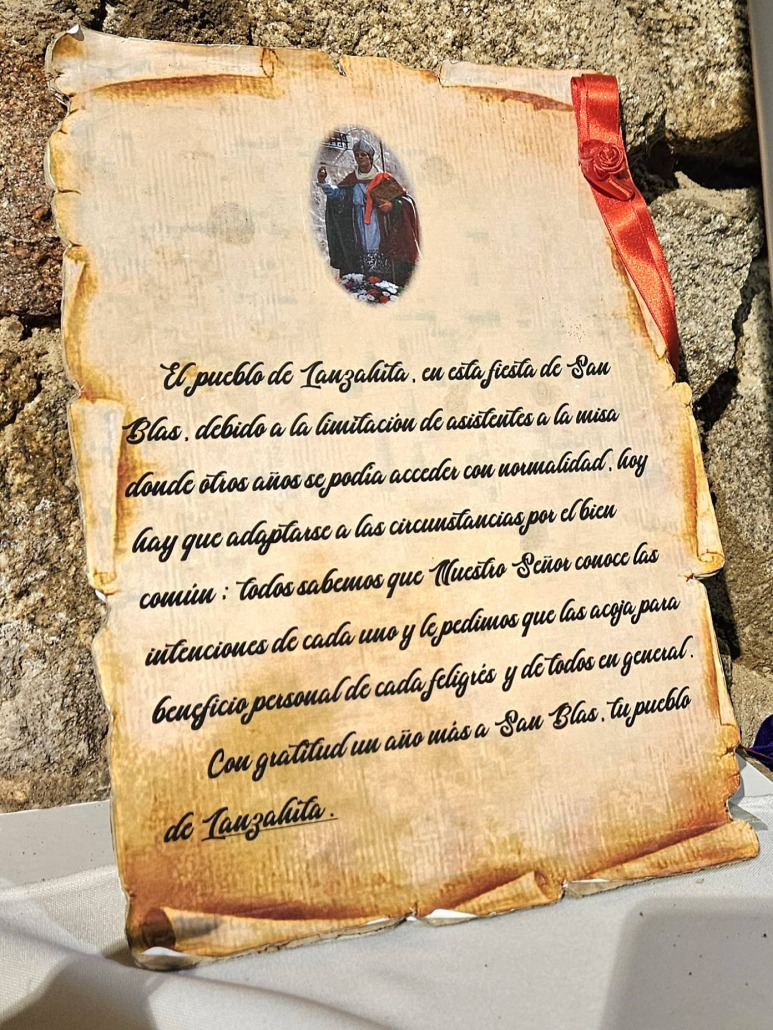 El pueblo de Lanzahita, en esta fiesta de San
Blas, debido a la limitación de asistentes a la misa
donde otros años se podía acceder con normalidad, hoy
hay que adaptarse a las circunstancias por el bien
común ; todos sabemos que Nuestro Señor conoce las
intenciones de cada uno y le pedimos que las acoja para
beneficio personal de cada feligrés y de todos en general.
Con gratitud un año más a San Blas, tu pueblo
de Lanzahita.